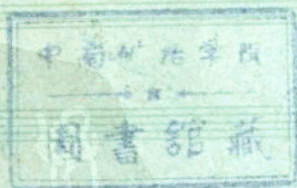 中南矿冶学院
圖書舘藏